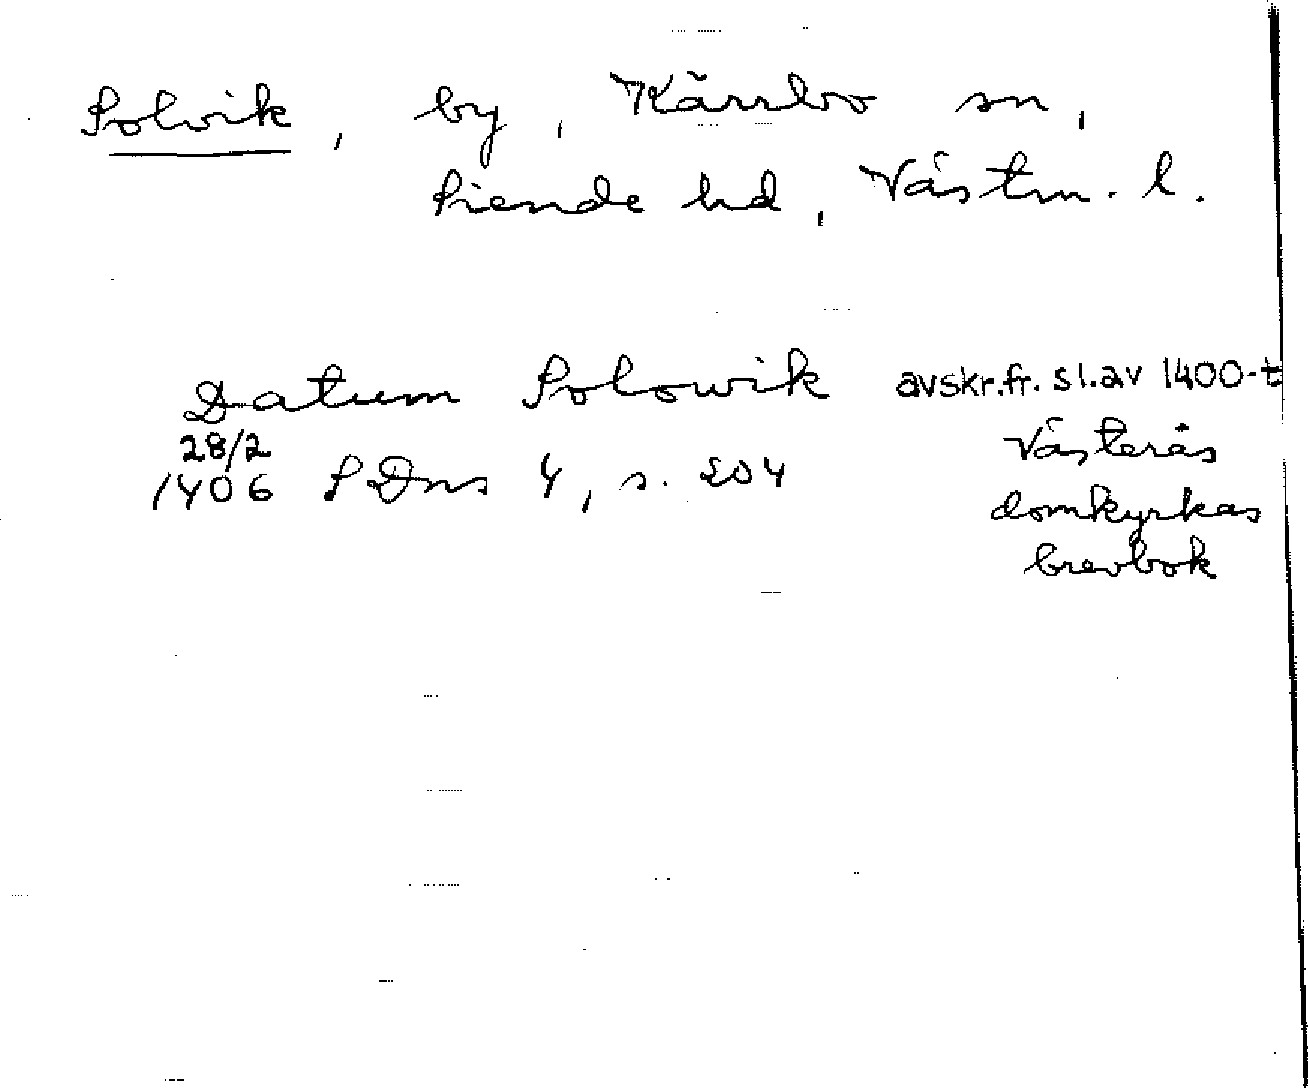 Solvik, by, Kärrbo sn,
Siende hd, Västm. l.
Datum Solowik avskr.fr. sl.av 1400-t
28/2 Västerås
1406 SDns 4, s. 204 domkyrkas
brevbok